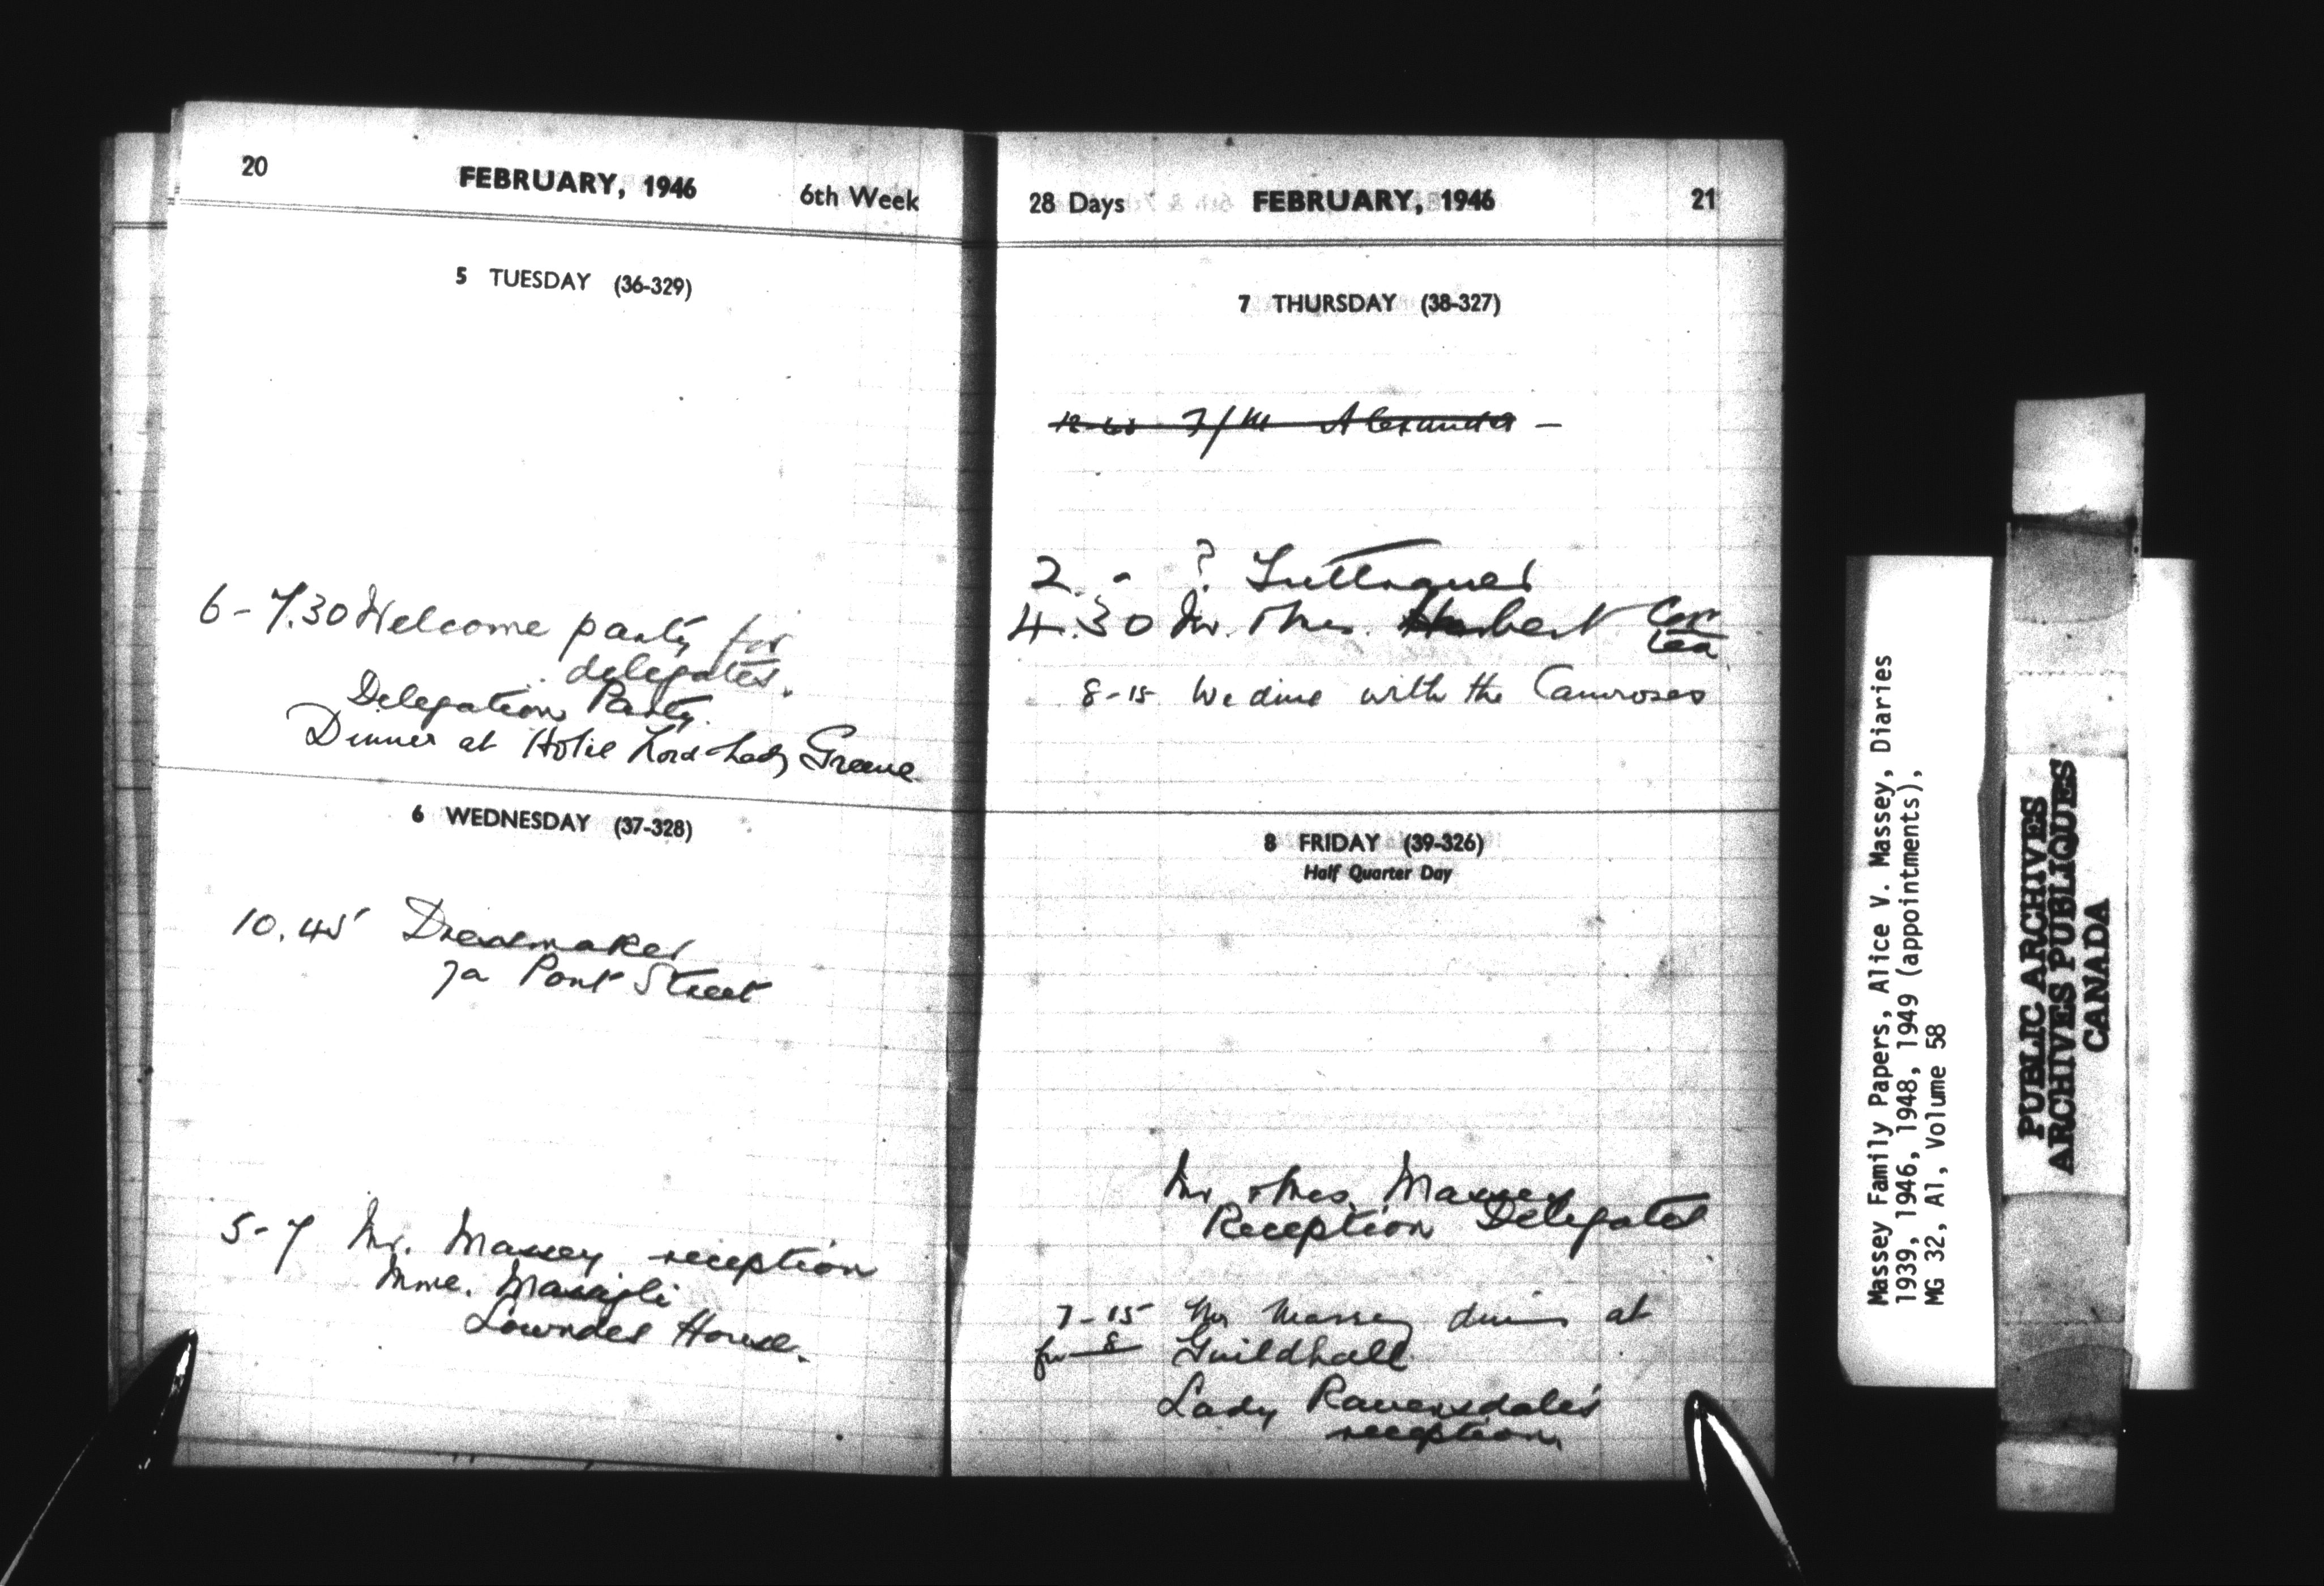 20 FEBRUARY, 1946 6th Week
5 TUESDAY (36-329)
6-7.30 Welcome party for
delegates.
Delegation Party.
Dinner at Hotel Lord & Lady Greene
6 WEDNESDAY (37-328)
10.45 Dressmaker
7a Pont Street
5-7 Mr. Massey reception
Mme.
Lowndes House.
28 Days FEBRUARY, 1946 21
7 THURSDAY (38-327)
F/M Alexander -
2. - ?
4.30 Mr. & Mrs. Herbert
tea
8-15 We dine with the Camroses
8 FRIDAY (39-326)
Half Quarter Day
Mr & Mrs. Massey
Reception Delegates
7-15 Mr Massey dines at
for 8 Guildhall
Lady Ravensdale's
reception.
Massey Family Papers, Alice V. Massey, Diaries
1939, 1946, 1948, 1949 (appointments),
MG 32, A1, Volume 58
PUBLIC ARCHIVES
ARCHIVES PUBLIQUES
CANADA